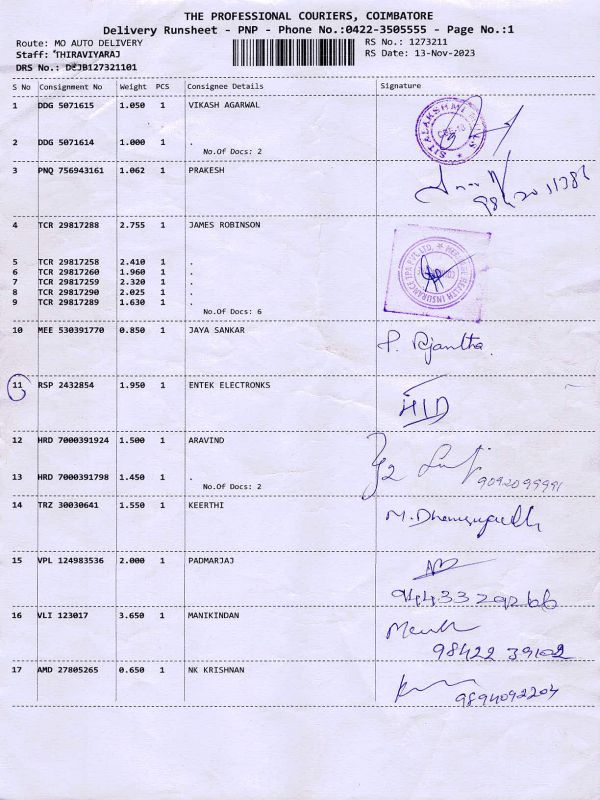 THE PROFESSIONAL COURIERS, COIMBATORE
Delivery Runsheet - PNP - Phone No.:0422-3505555 - Page No.:1
Route: MO AUTO DELIVERY RS No.: 1273211
Staff: THIRAVIYARAJ RS Date: 13-Nov-2023
DRS No.: DEJB127321101
S No Consignment No Weight PCS Consignee Details Signature
1 DDG 5071615 1.050 1 VIKASH AGARWAL
2 DDG 5071614 1.000 1 .
No.Of Docs: 2
3 PNQ 756943161 1.062 1 PRAKESH
4 TCR 29817288 2.755 1 JAMES ROBINSON
5 TCR 29817258 2.410 1 .
6 TCR 29817260 1.960 1 .
7 TCR 29817259 2.320 1 .
8 TCR 29817290 2.025 1 .
9 TCR 29817289 1.630 1 .
No.Of Docs: 6
10 MEE 530391770 0.850 1 JAYA SANKAR
11 RSP 2432854 1.950 1 ENTEK ELECTRONKS
12 HRD 7000391924 1.500 1 ARAVIND
13 HRD 7000391798 1.450 1 .
No.Of Docs: 2 9092099991
14 TRZ 30030641 1.550 1 KEERTHI
15 VPL 124983536 2.000 1 PADMARJAJ
9443329266
16 VLI 123017 3.650 1 MANIKINDAN
98422 39102
17 AMD 27805265 0.650 1 NK KRISHNAN
9894092204